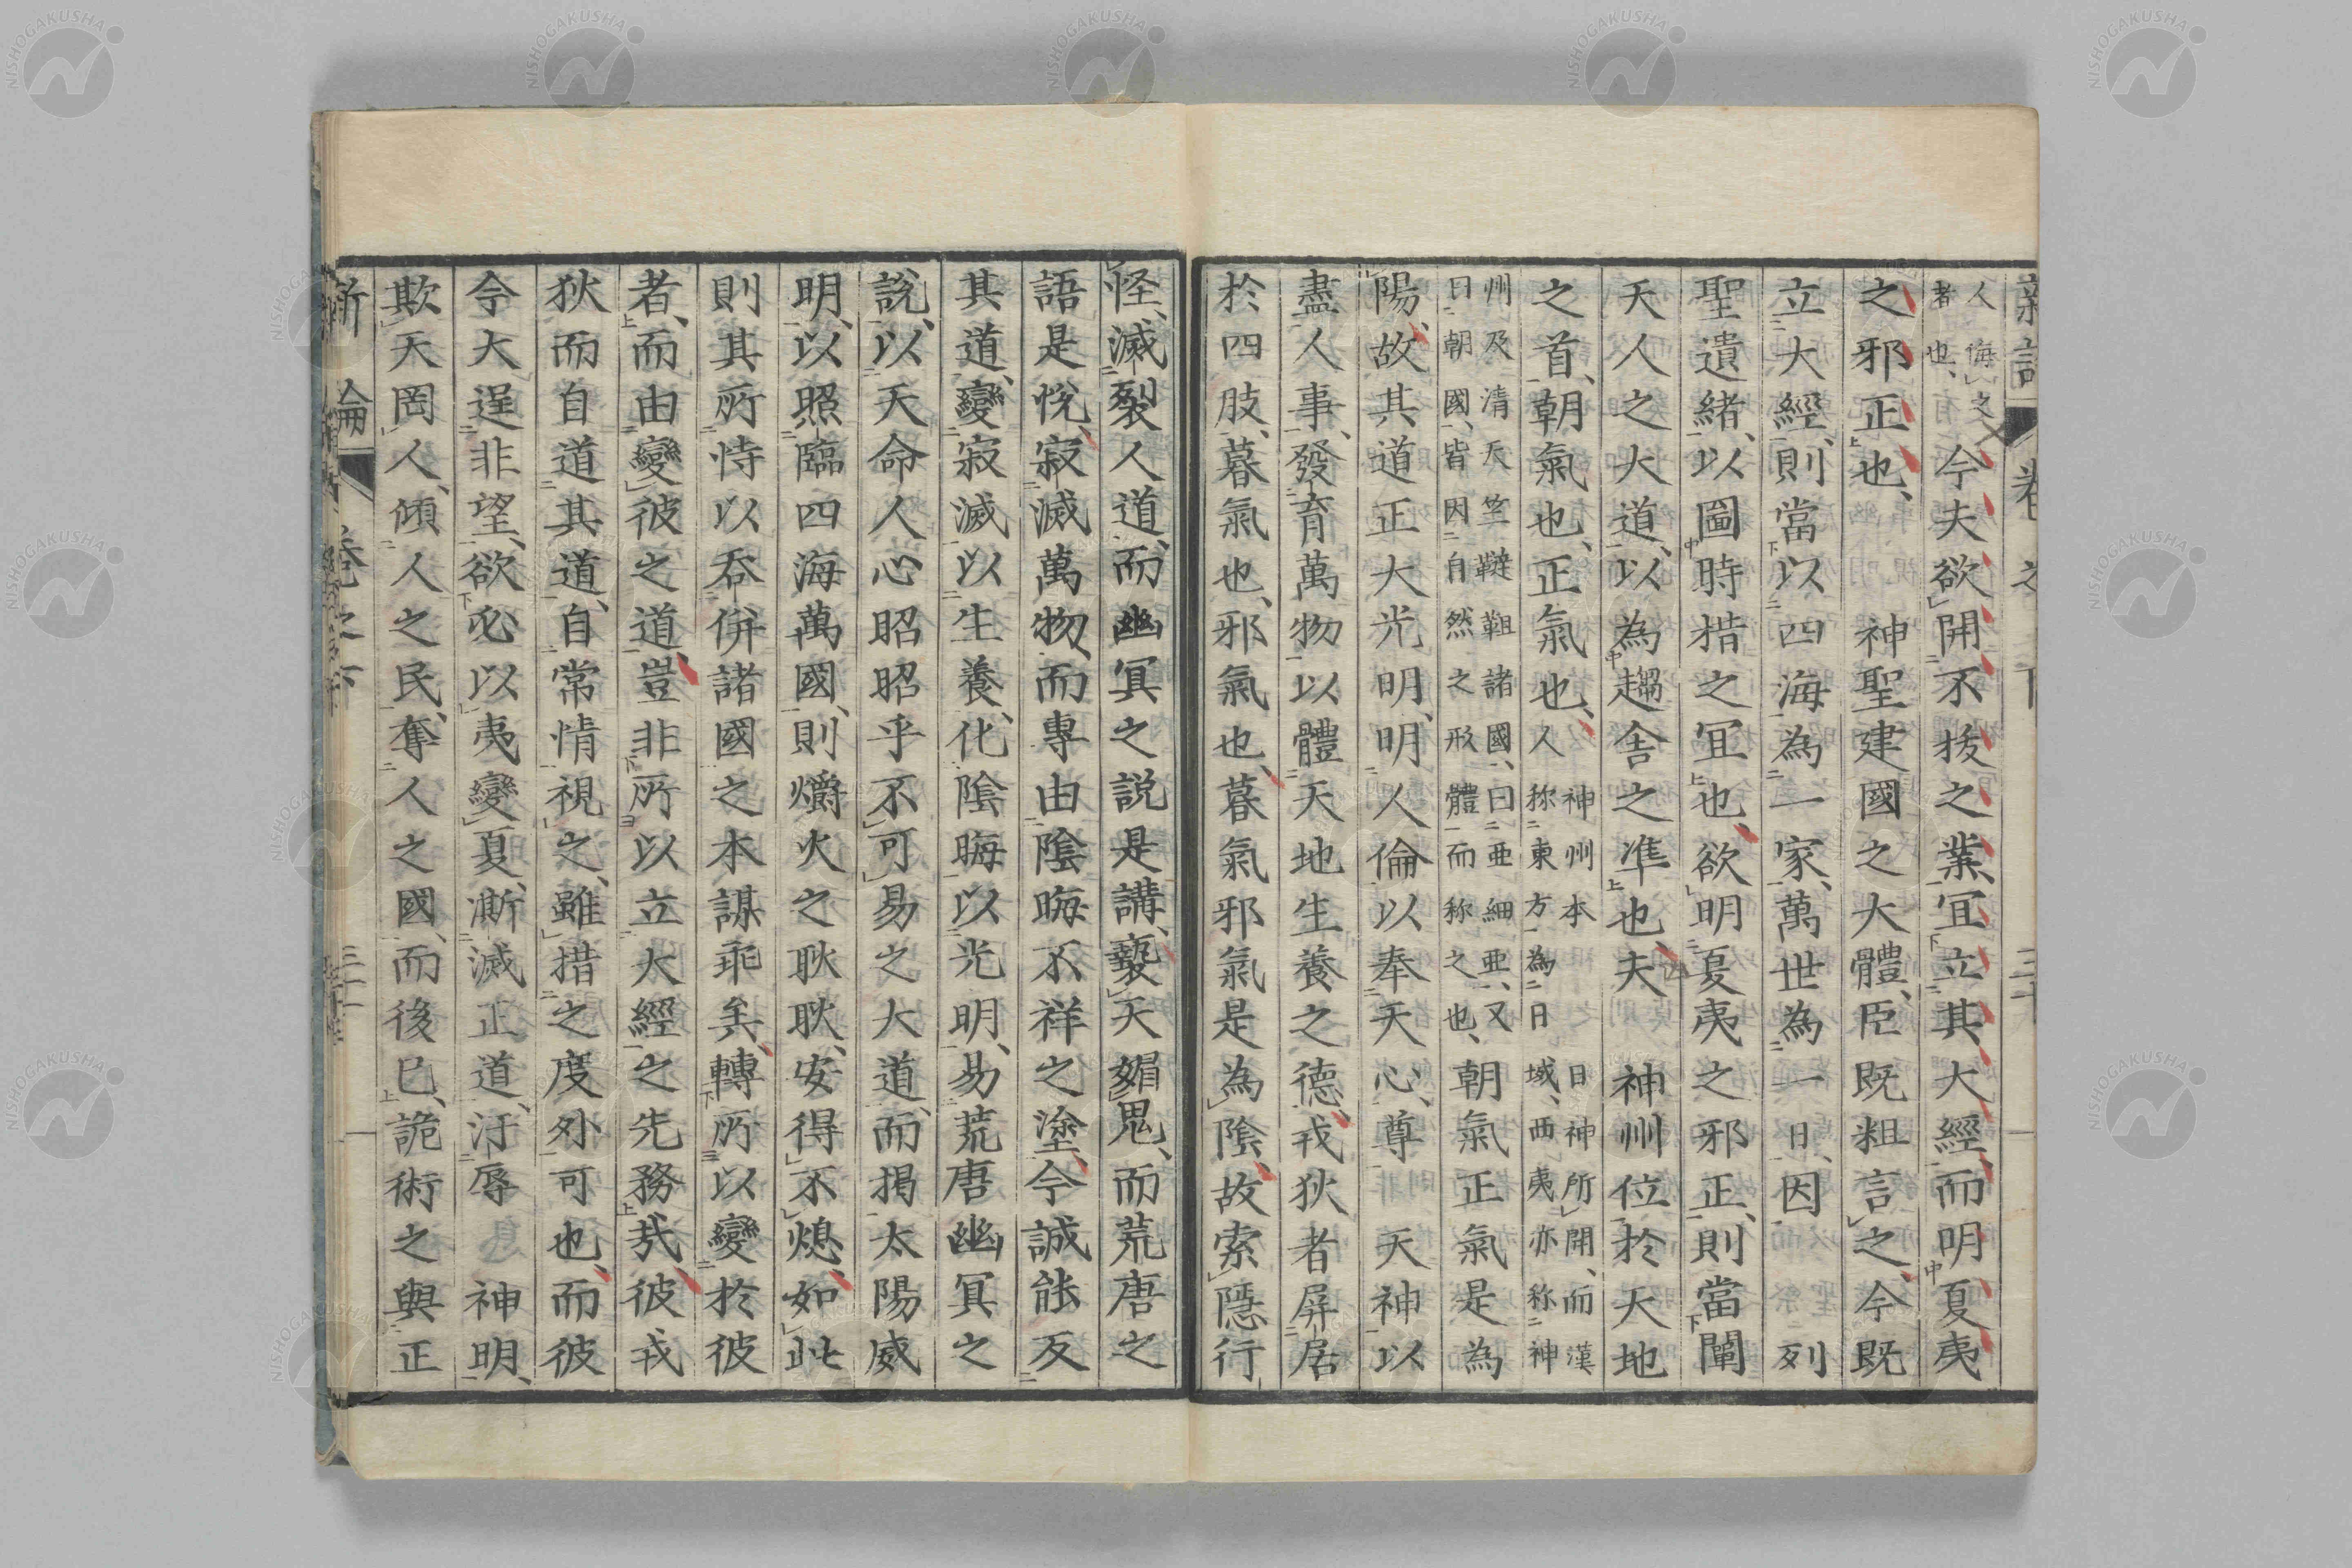 人侮之
者也、有
今夫欲開不拔之業、宜立其大經、而明夏夷
之邪正也、神聖建國之大體、臣既粗言之、今既
立大經、則當以四海為一家、萬世為一日、因列
聖遺緒、以圖時措之宜也、欲明夏夷之邪正、則當闡
天人之大道、以為趨舍之準也、夫神州位於天地
之首、朝氣也、正氣也、
神州本日神所開、而漢
人称東方為日域、西夷亦称神
州及清天竺韃靼諸國、曰亜細亜、又
曰朝國、皆因自然之形體而称之也、
朝氣正氣是為
陽、故其道正大光明、明人倫以奉天心、尊天神以
盡人事、發育萬物以體天地生養之德、戎狄者屏居
於四肢、暮氣也、邪氣也、暮氣邪氣是為陰、故索隱行
怪、滅裂人道、而幽冥之説是講、褻天媚鬼、而荒唐之
語是悅、寂滅萬物、而專由陰晦不祥之塗、今誠能反
其道、變寂滅以生養、化陰晦以光明、易荒唐幽冥之
說、以天命人心昭昭乎不可易之大道、而揭太陽威
明、以照臨四海萬國、則爝火之耿耿、安得不熄、如此
則其所恃以吞併諸國之本謀乖矣、轉所以變於彼
者、而由變彼之道、豈非所以立大經之先務哉、彼戎
狄而自道其道、自常情視之、雖措之度外可也、而彼
今大逞非望、欲必以夷變夏、澌滅正道、汙辱神明、
欺天罔人、傾人之民、奪人之國、而後已、詭術之與正
新論 卷之下 三十一